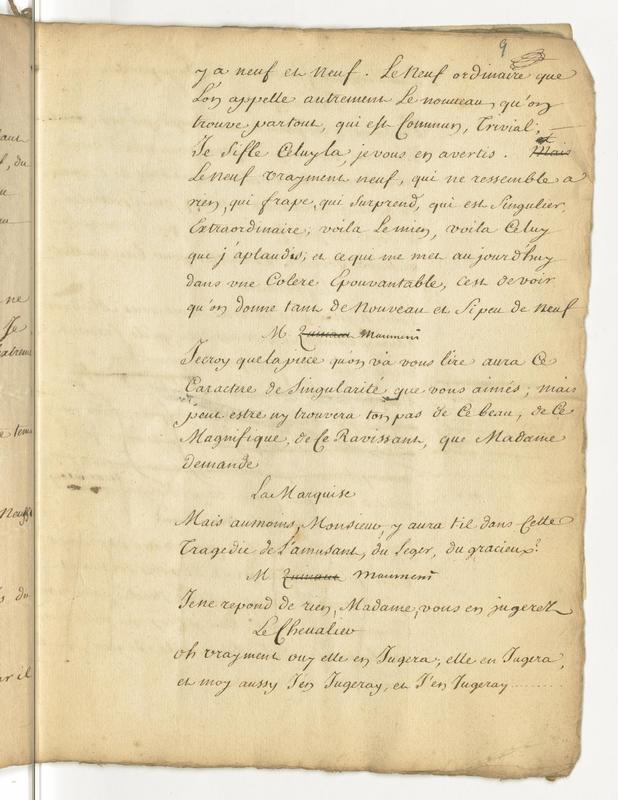 9
y a neuf et neuf. Le neuf ordinaire que
L'on appelle autrement Le nouveau, qu'on
trouve partout, qui est Commun, Trivial;
Je Sifle Celuyla, je vous en avertis. et Mais
Le neuf vrayment neuf, qui ne ressemble a
rien, qui frape, qui surprend, qui est Singulier,
Extraordinaire; voila Le mien, voila Celuy
que j'aplaudis; et ce qui me met aujourd'huy
dans une Colere Epouvantable, c'est de voir
qu'on donne tant de Nouveau et si peu de neuf
M.
Je croy que la piece qu'on va vous lire aura Ce
Caractere de Singularité que vous aimés; mais
peut estre ny trouvera ton pas de Ce beau, de Ce
Magnifique, de Ce Ravissant, que Madame
demande
La Marquise
Mais aumoins, Monsieur, y aura til dans Cette
Tragedie de L'amusant, du Leger, du gracieux?
M.
Je ne repond de rien, Madame, vous en jugerez
Le Chevalier
oh vrayment ouy elle en Jugera, elle en Jugera,
et moy aussy J'en Jugeray, et J'en Jugeray........